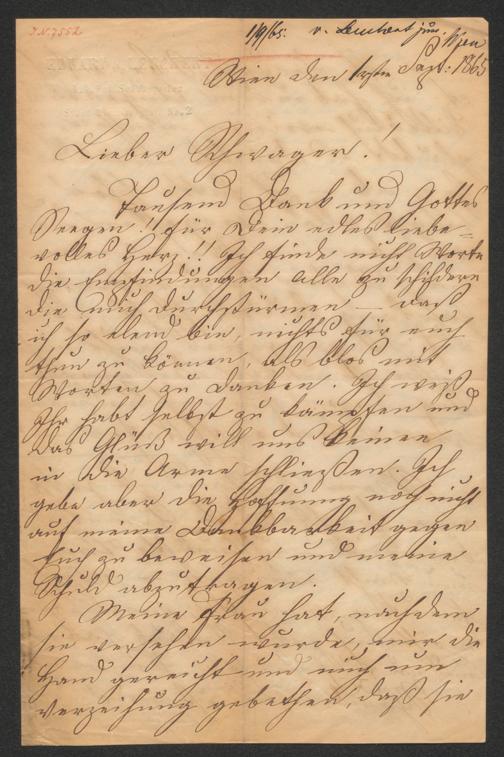 I.N. 7552
1/9/65. v. Leuchert jun. Wien
Wien den 1ten Sept: 1865
Lieber Schwager!
Tausend Dank und Gottes
Seegen!! für Dein edles liebe-
volles Herz!! Ich finde nicht Worte
die Empfindungen alle zu schildern
die mich durchstürmen – daß
ich so elend bin, nichts für euch
thun zu können, als blos mit
Worten zu danken. Ich weiß
Ihr habt selbst zu kämpfen und
das Glück will uns keinen
in die Arme schließen. Ich
gebe aber die Hoffnung noch nicht
auf meine Dankbarkeit gegen
Euch zu beweisen und meine
Schuld abzutragen.
Meine Frau hat, nachdem
sie versehen wurde, mir die
Hand gereicht und mich um
verzeihung gebethen, daß sie